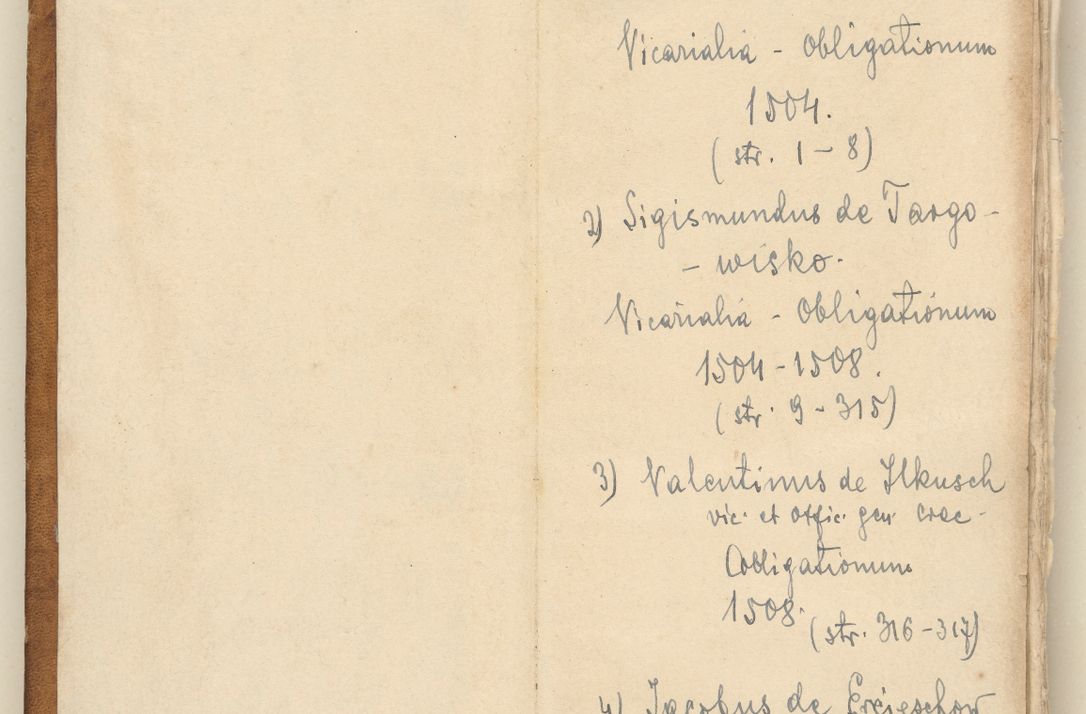 Vicarialia - Obligationum
1504.
(str. 1 - 8)
2) Sigismundus de Targo-
- wisko.
Vicarialia - Obligationum
1504 - 1508.
(str. 9 - 315)
3) Valentinus de Ilkusch
vic. et offic. gen. Crac.
Obligationum
1508. (str. 316 - 317)
4) Jacobus de